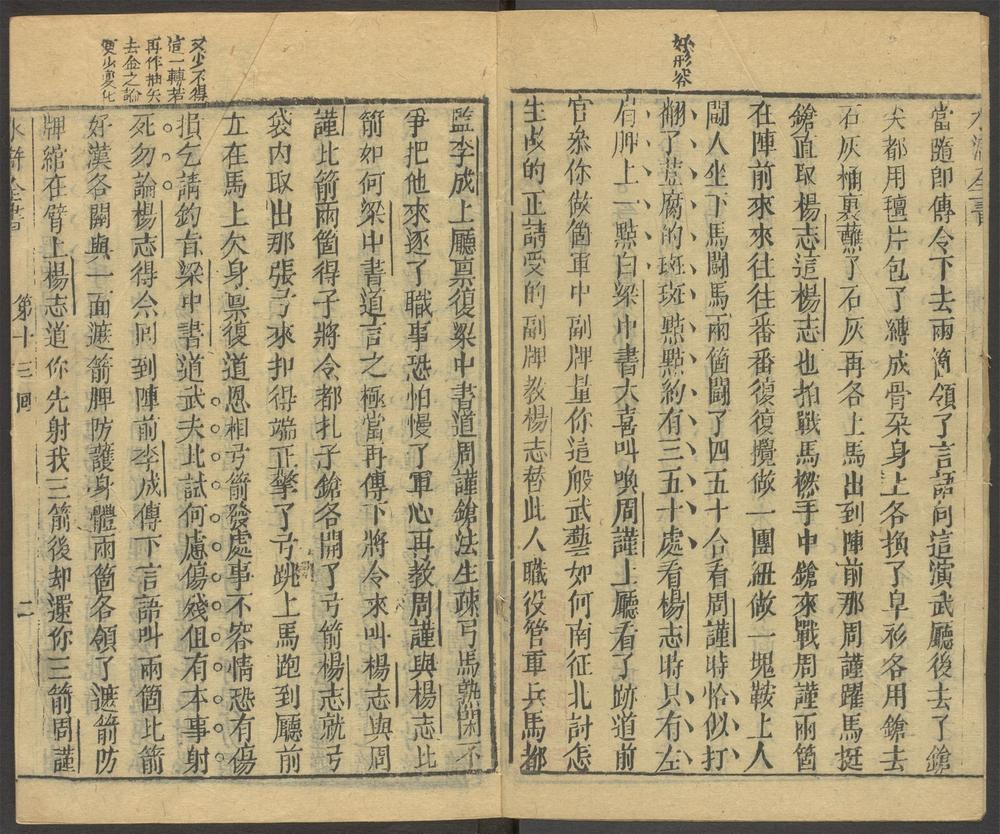 好形容
當隨即傳令下去兩箇領了言語向這演武廳後去了鎗
尖都用氊片包了縛成骨朶身上各換了皁衫各用鎗去
石灰桶裏蘸了石灰再各上馬出到陣前那周謹躍馬挺
鎗直取楊志這楊志也拍戰馬撚手中鎗來戰周謹兩箇
在陣前來來往往番番復復攪做一團紐做一塊鞍上人
鬪人坐下馬鬪馬兩箇鬪了四五十合看周謹時恰似打
翻了荳腐的斑斑點點約有三五十處看楊志時只有左
肩胛上一點白梁中書大喜叫喚周謹上廳看了跡道前
官叅你做箇軍中副牌量你這般武藝如何南征北討怎
生做的正請受的副牌教楊志替此人職役管軍兵馬都
又少不得
這一轉若
再作抽矢
去金之論
便少變化
監李成上廳禀復梁中書道周謹鎗法生疎弓馬熟閑不
爭把他來逐了職事恐怕慢了軍心再教周謹與楊志比
箭如何梁中書道言之極當再傳下將令來叫楊志與周
謹比箭兩箇得了將令都扎了鎗各關了弓箭楊志就弓
袋內取出那張弓來扣得端正擎了弓跳上馬跑到廳前
立在馬上欠身禀復道恩相弓箭發處事不容情恐有傷
損乞請鈞旨梁中書道武夫比試何慮傷殘但有本事射
死勿論楊志得令回到陣前李成傳下言語叫兩箇比箭
好漢各關與一面遮箭牌防護身體兩箇各領了遮箭防
牌綰在臂上楊志道你先射我三箭後却還你三箭周謹
水滸全書
第十三回
二